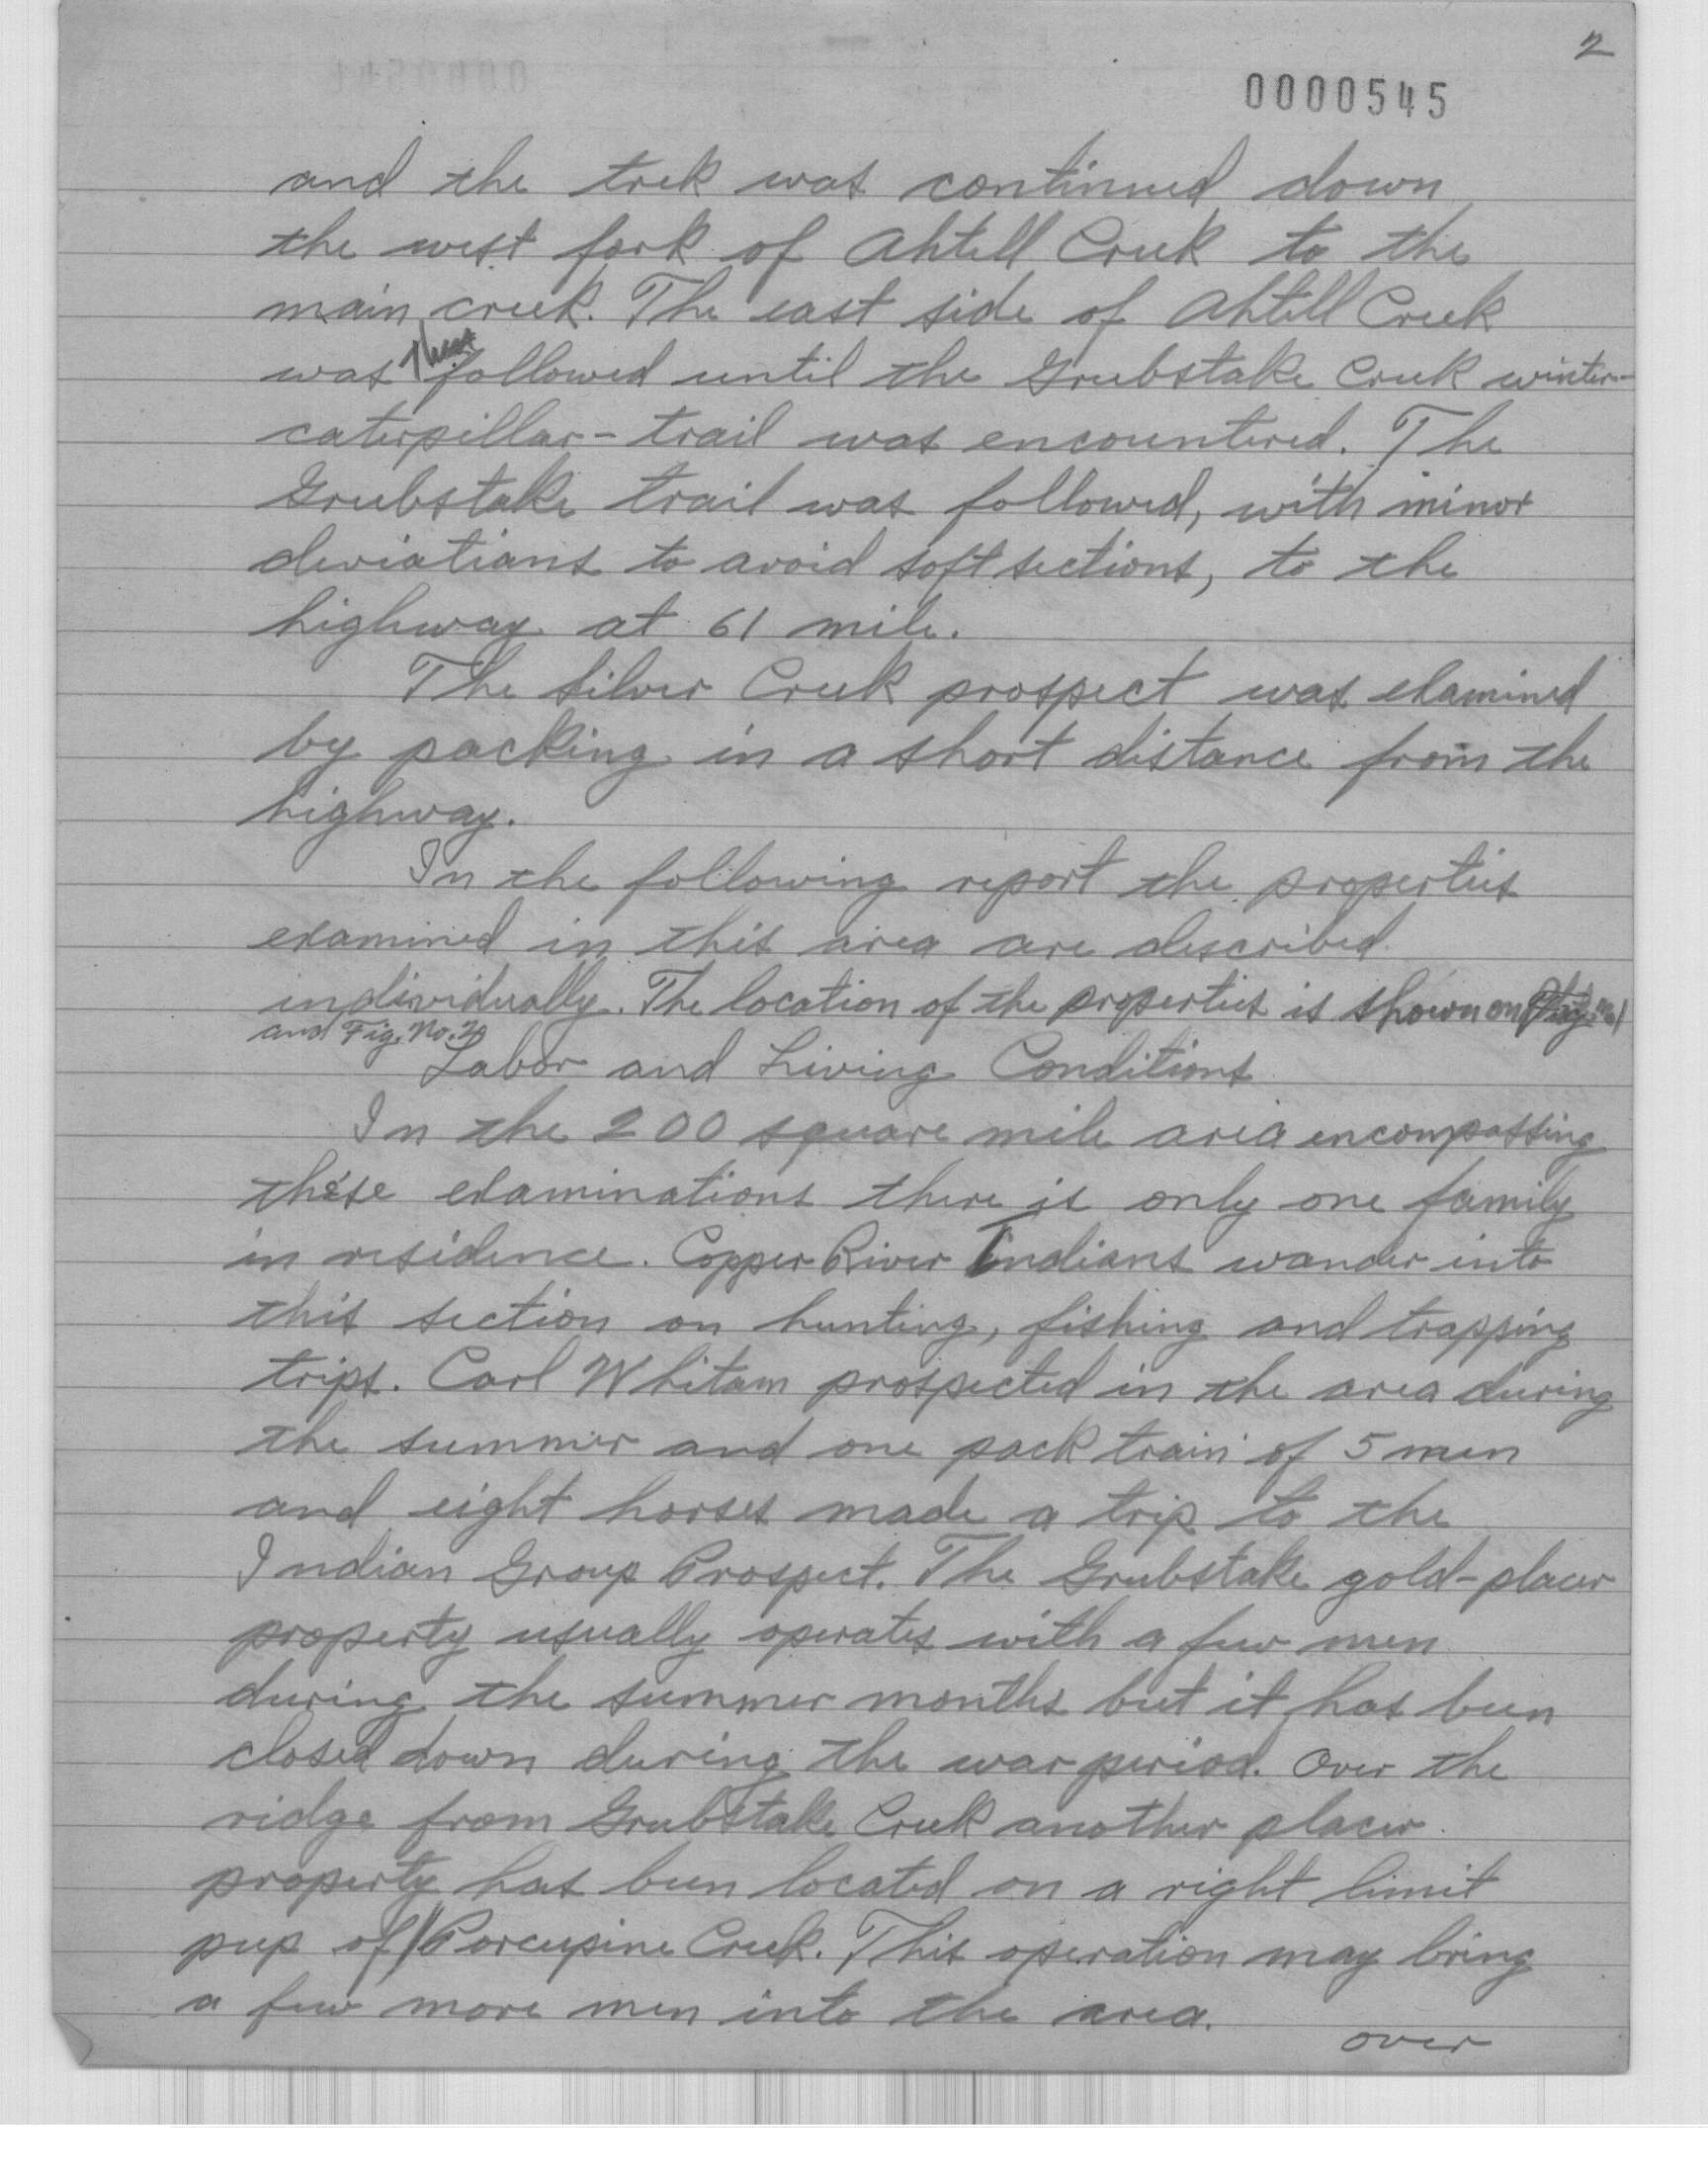 2
0000545
and the trek was continued down
the west fork of Ahtell Creek to the
main creek. The east side of Ahtell Creek
was then followed until the Grubstake Creek winter-
caterpillar-trail was encountered. The
Grubstake trail was followed, with minor
deviations to avoid soft sections, to the
highway at 61 mile.
The Silver Creek prospect was examined
by packing in a short distance from the
highway.
In the following report the properties
examined in this area are described
individually. The location of the properties is shown on
and Fig. No. 2
Labor and Living Conditions
In the 200 square mile area encompassing
these examinations there is only one family
in residence. Copper River Indians wander into
this section on hunting, fishing and trapping
trips. Carl Whitam prospected in the area during
the summer and one pack train of 5 men
and eight horses made a trip to the
Indian Group Prospect. The Grubstake gold-placer
property usually operates with a few men
during the summer months but it has been
closed down during the war period. Over the
ridge from Grubstake Creek another placer
property has been located on a right limit
pup of Porcupine Creek. This operation may bring
a few more men into the area.
over